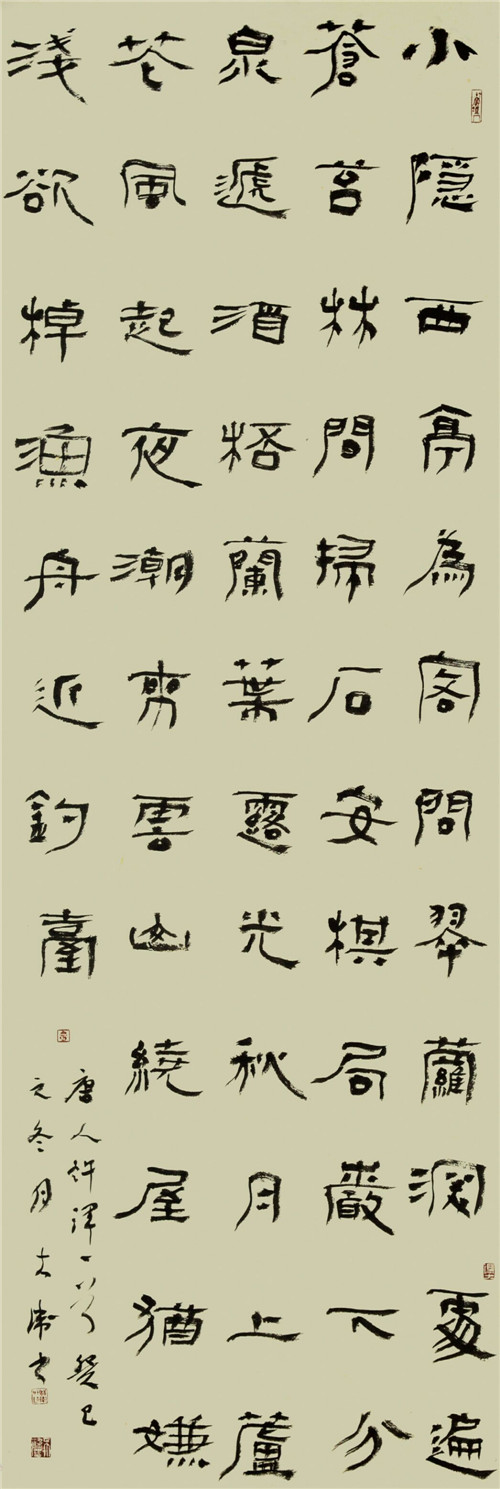 小隱西亭為客問翠蘿深處遍
蒼苔林間掃石安棋局嚴下分
泉遞酒桮蘭葉露光秋月上蘆
花風起夜潮來雲山繞屋猶嫌
淺欲棹漁舟近釣臺
唐人許渾一首癸巳
之冬月書